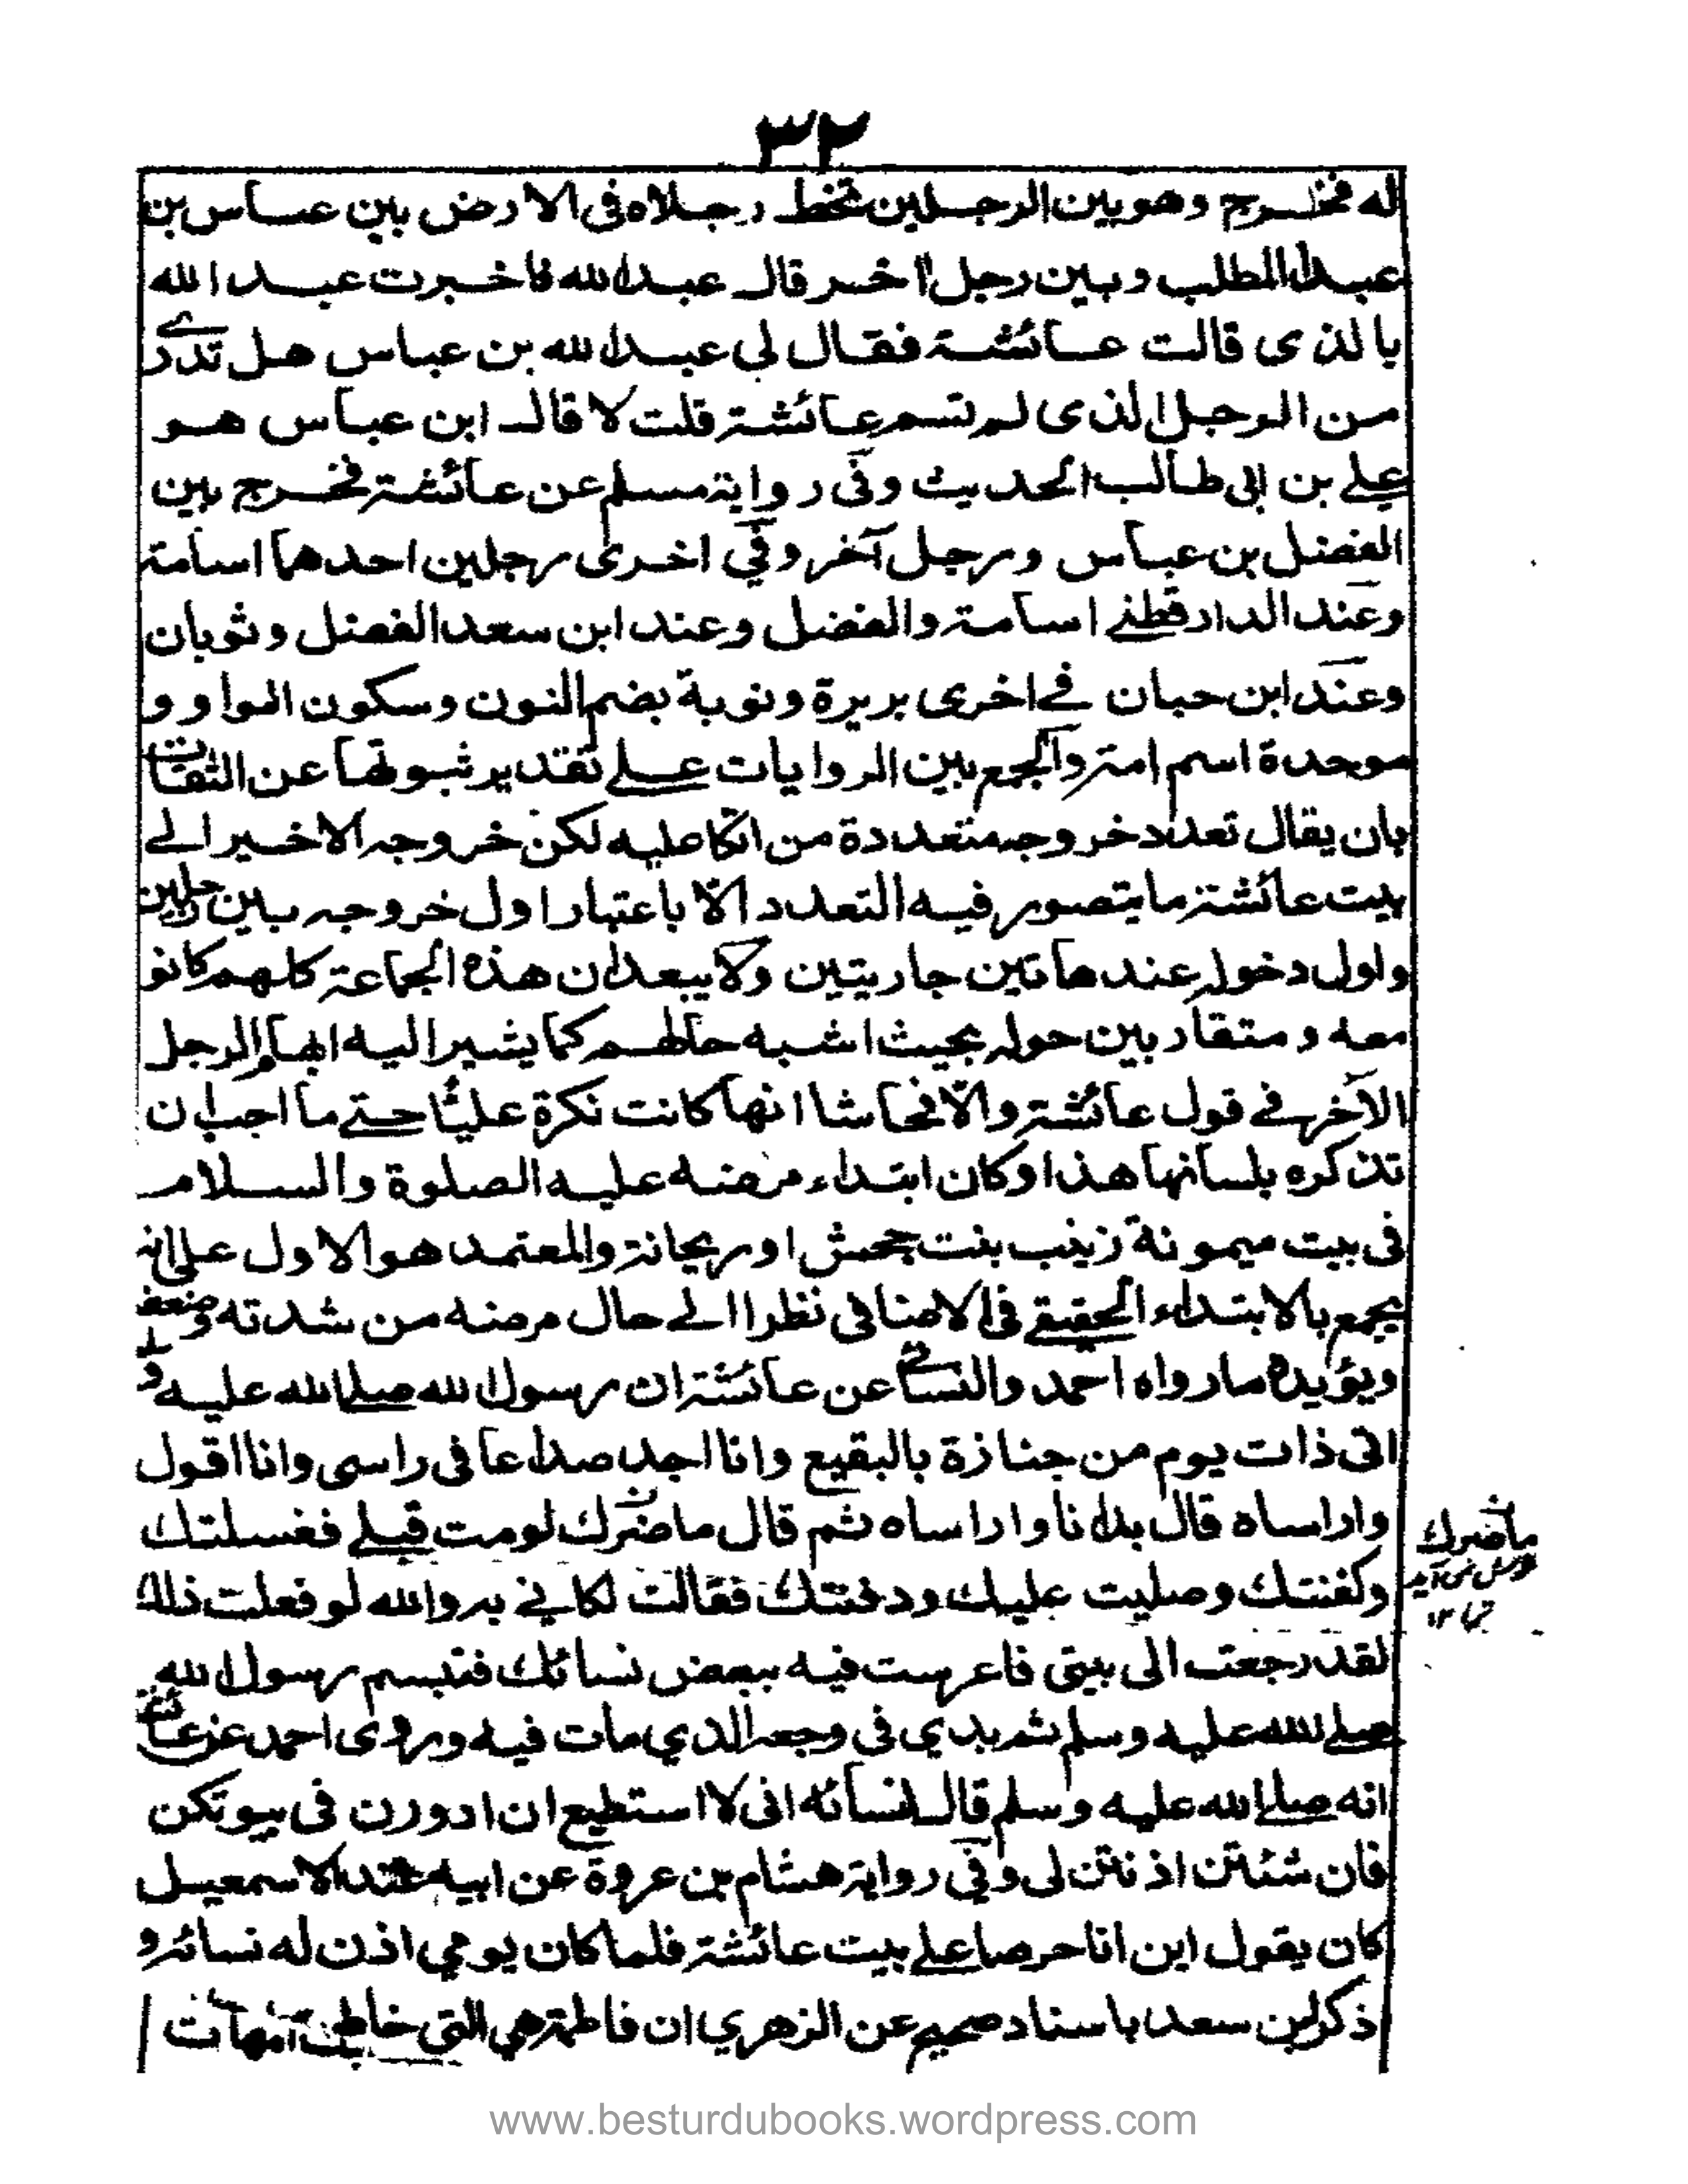 ٣٢
له فخرج وهو بين الرجلين تخط رجلاه في الارض بين عباس بن
عبد المطلب وبين رجل اخر قال عبد الله فاخبرت عبد الله
بالذي قالت عائشة فقال لي عبد الله بن عباس هل تدري
من الرجل الذي لم تسم عائشة قلت لا قال ابن عباس هو
علي بن ابي طالب الحديث وفي رواية مسلم عن عائشة فخرج بين
الفضل بن عباس ورجل آخر وفي اخرى رجلين احدهما اسامة
وعند الدارقطني اسامة والفضل وعند ابن سعد الفضل وثوبان
وعند ابن حبان في اخرى بريرة ونوبة بضم النون وسكون الواو و
موحدة اسم امة والجمع بين الروايات علي تقدير ثبوتها عن الثقات
بان يقال تعدد خروجه متعددة من اتكا عليه لكن خروجه الاخير الي
بيت عائشة ما يتصور فيه التعدد الا باعتبار اول خروجه بين رجلين
واول دخوله عند هاتين جاريتين ولا يبعد ان هذه الجماعة كلهم كانو
معه ومتقاربين حوله بحيث اشبه حالهم كما يشير اليه ابهام الرجل
الآخر في قول عائشة والا فحاشا انها كانت نكرة عليا حتي ما احب ان
تذكره بلسانها هذا وكان ابتداء مرضه عليه الصلوة والسلام
في بيت ميمونة زينب بنت جحش او ريحانة والمعتمد هو الاول علي انه
يجمع بالابتداء الحقيقي في الاضافي نظرا الي حال مرضه من شدته وضعفه
ويؤيده ما رواه احمد والنسائي عن عائشة ان رسول الله صلي الله عليه وسلم
اتى ذات يوم من جنازة بالبقيع وانا اجد صداعا في راسي وانا اقول
واراساه قال بل انا واراساه ثم قال ما ضرك لو مت قبلي فغسلتك
وكفنتك وصليت عليك ودفنتك فقالت لكاني به والله لو فعلت ذلك
لقد رجعت الى بيتي فاعرست فيه ببعض نسائك فتبسم رسول الله
صلي الله عليه وسلم ثم بدي في وجعه الذي مات فيه وروى احمد عن عائشة
انه صلي الله عليه وسلم قال لنسائه انى لا استطيع ان ادورن في بيوتكن
فان شئتن اذنتن لي وفي رواية هشام بن عروة عن ابيه عند الاسمعيل
كان يقول اين انا حرصا علي بيت عائشة فلما كان يومي اذن له نسائه و
ذكر ابن سعد باسناد صحيح عن الزهري ان فاطمة هي التي خاطبت امهات
ما ضرك
www.besturdubooks.wordpress.com